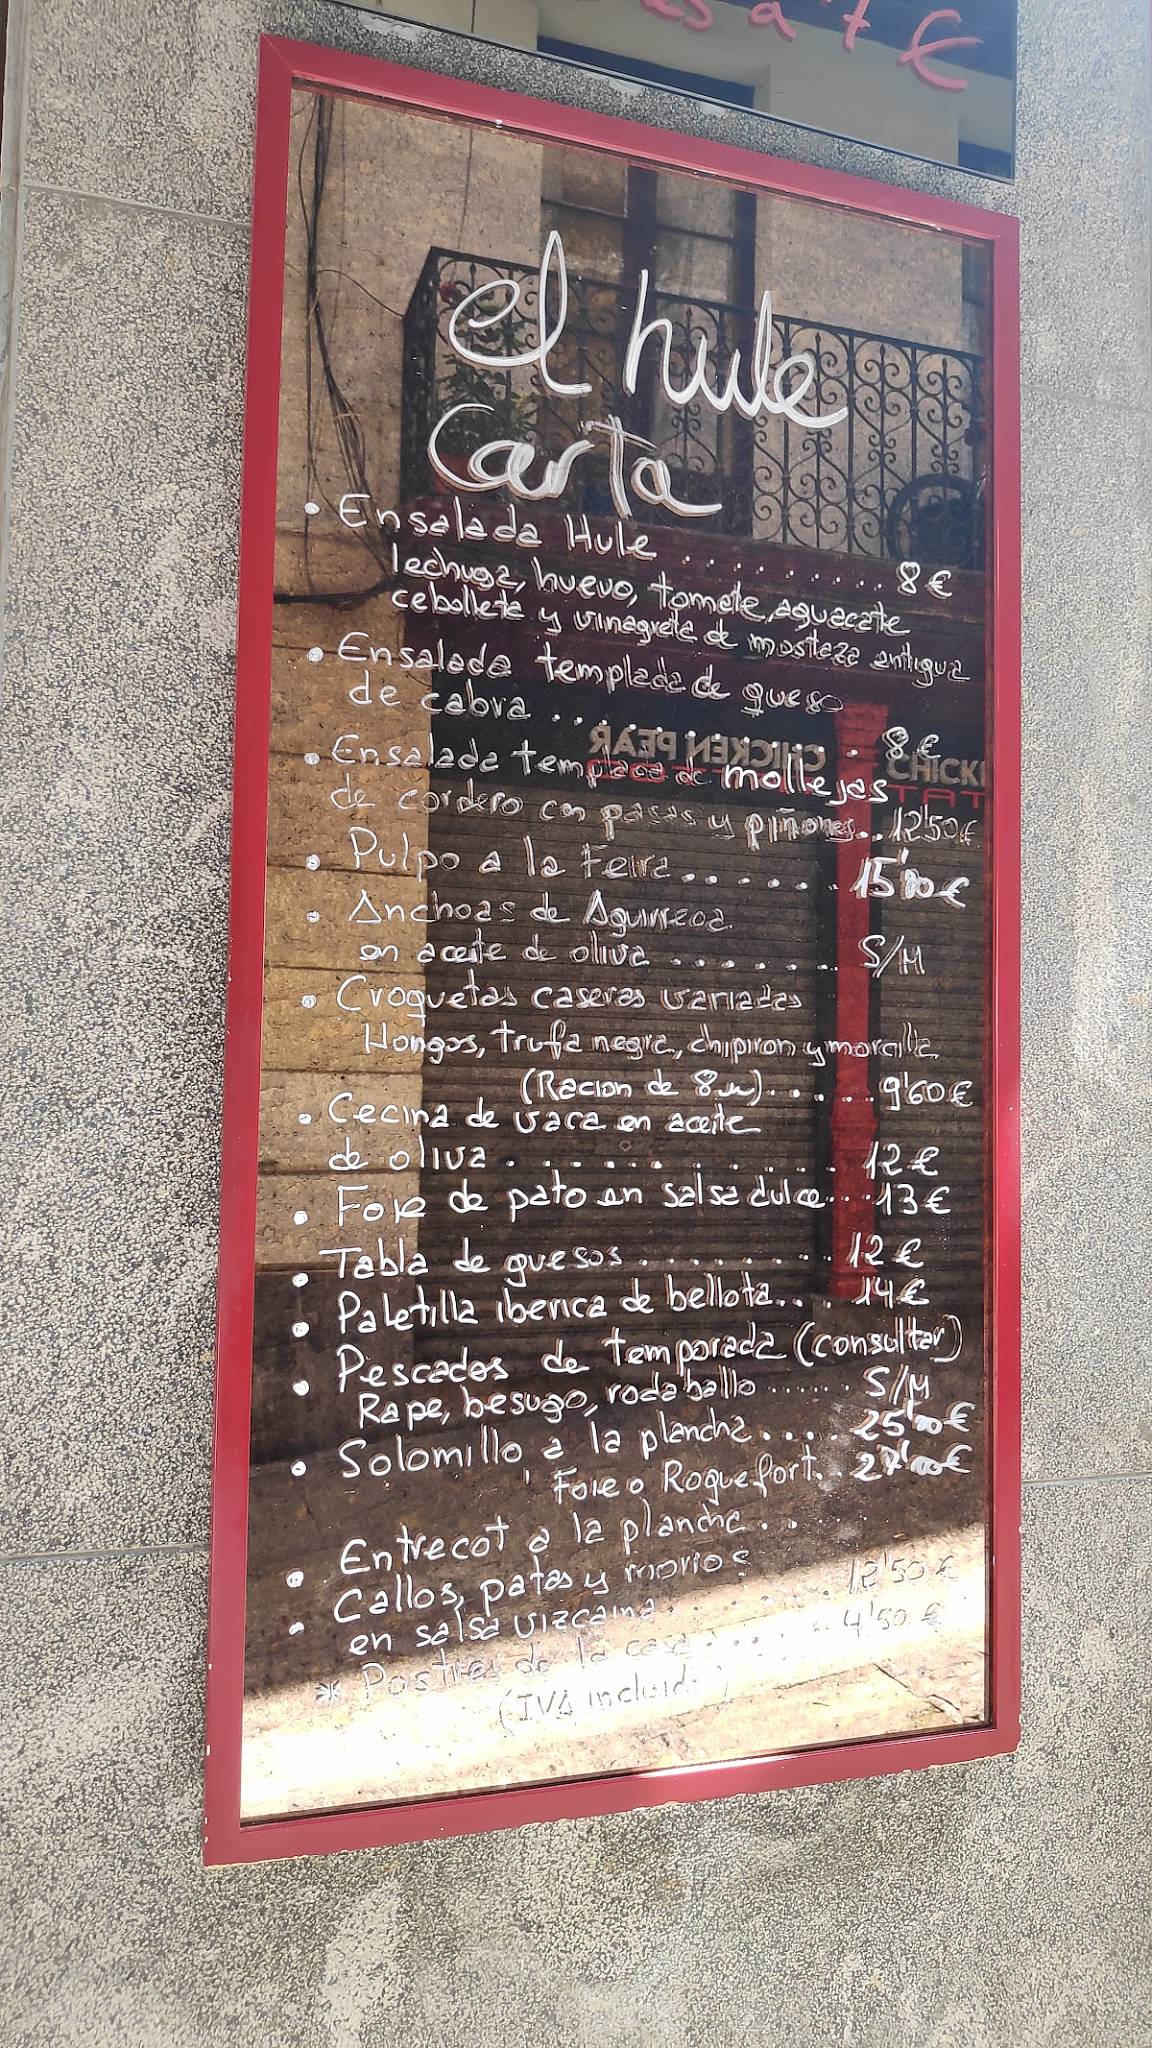 es a 7 €
el hule
Carta
• Ensalada Hule ......... 8 €
lechuga, huevo, tomate, aguacate
cebolleta y vinagreta de mostaza antigua
• Ensalada templada de queso
de cabra ......... 8 €
CHICKEN PEAR
CHICK
• Ensalada templada de mollejas
de cordero con pasas y piñones.. 12'50 €
• Pulpo a la Feira....... 15'00 €
• Anchoas de Aguirreoa
en aceite de oliva ........ S/M
• Croquetas caseras variadas
Hongos, trufa negra, chipiron y morcilla
(Racion de 8u)...... 9'60 €
• Cecina de vaca en aceite
de oliva ............ 12 €
• Foie de pato en salsa dulce... 13 €
• Tabla de quesos ........ 12 €
• Paletilla iberica de bellota... 14 €
• Pescados de temporada (consultar)
Rape, besugo, rodaballo ...... S/M
• Solomillo a la plancha.... 25'00 €
Foie o Roquefort.. 27'00 €
• Entrecot a la plancha...
• Callos, patas y morros
en salsa vizcaina....... 12'50 €
* Postres de la casa...... 4'50 €
(IVA incluido)